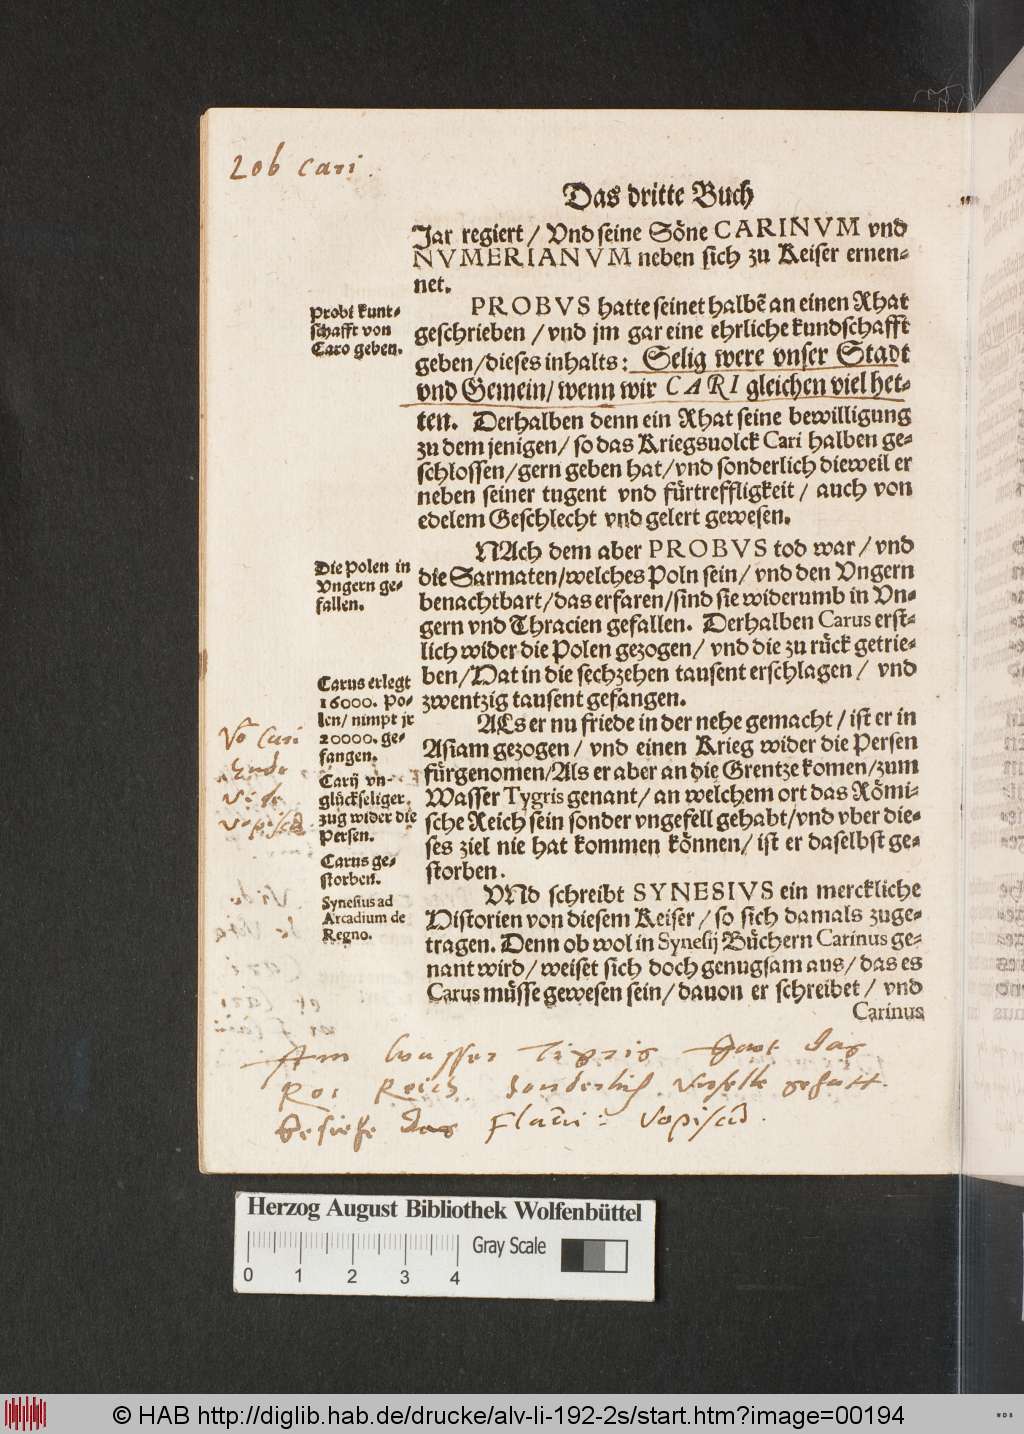 Lob Cari.
Das dritte Buch
Jar regiert / Vnd seine Söne CARINVM vnd
NVMERIANVM neben sich zu Keiser ernen-
net.
PROBVS hatte seinet halbē an einen Rhat
geschrieben / vnd jm gar eine ehrliche kundschafft
geben / dieses inhalts: Selig were vnser Stadt
vnd Gemein / wenn wir CARI gleichen viel het-
ten. Derhalben denn ein Rhat seine bewilligung
zu dem jenigen / so das Kriegsuolck Cari halben ge-
schlossen / gern geben hat / vnd sonderlich dieweil er
neben seiner tugent vnd fürtreffligkeit / auch von
edelem Geschlecht vnd gelert gewesen.
Probi kunt-
schafft von
Caro geben.
NAch dem aber PROBVS tod war / vnd
die Sarmaten / welches Poln sein / vnd den Vngern
benachtbart / das erfaren / sind sie widerumb in Vn-
gern vnd Thracien gefallen. Derhalben Carus erst-
lich wider die Polen gezogen / vnd die zu rück getrie-
ben / Hat in die sechzehen tausent erschlagen / vnd
zwentzig tausent gefangen.
Die Polen in
Vngern ge-
fallen.
Carus erlegt
16000. Po-
len / nimpt jr
20000. ge-
fangen.
ALs er nu friede in der nehe gemacht / ist er in
Asiam gezogen / vnd einen Krieg wider die Persen
fürgenomen / Als er aber an die Grentze komen / zum
Wasser Tygris genant / an welchem ort das Römi-
sche Reich sein sonder vngefell gehabt / vnd vber die-
ses ziel nie hat kommen können / ist er daselbst ge-
storben.
Carij vn-
glückseliger
zug wider die
Persen.
Carus ge-
storben.
Vō Cari
Ende
vide
Vopiscū
VNd schreibt SYNESIVS ein merckliche
Historien von diesem Keiser / so sich damals zuge-
tragen. Denn ob wol in Synesij Büchern Carinus ge-
nant wird / weiset sich doch genugsam aus / das es
Carus müsse gewesen sein / dauon er schreibet / vnd
Carinus
Synesius ad
Arcadium de
Regno.
Am Wasser Tigris hat das
Ro: Reich sonderlich Vnfelle gehatt.
besiehe das Flavi: Vopiscū.
Herzog August Bibliothek Wolfenbüttel
Gray Scale
0 1 2 3 4
© HAB http://diglib.hab.de/drucke/alv-li-192-2s/start.htm?image=00194